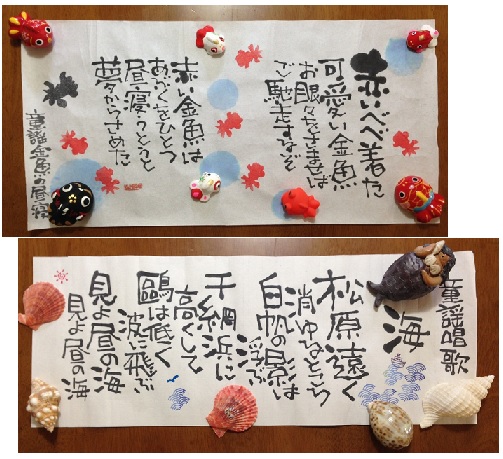 赤いべべ着た
可愛い金魚
お眼々をさませば
ご馳走するぞ
赤い金魚は
あぶくをひとつ
昼寝うとうと
夢からさめた
童謡金魚の昼寝
童謡唱歌
海
松原遠く
消ゆるところ
白帆の影は
浮ぶ
干網浜に
高くして
鴎は低く
波に飛ぶ
見よ昼の海
見よ昼の海